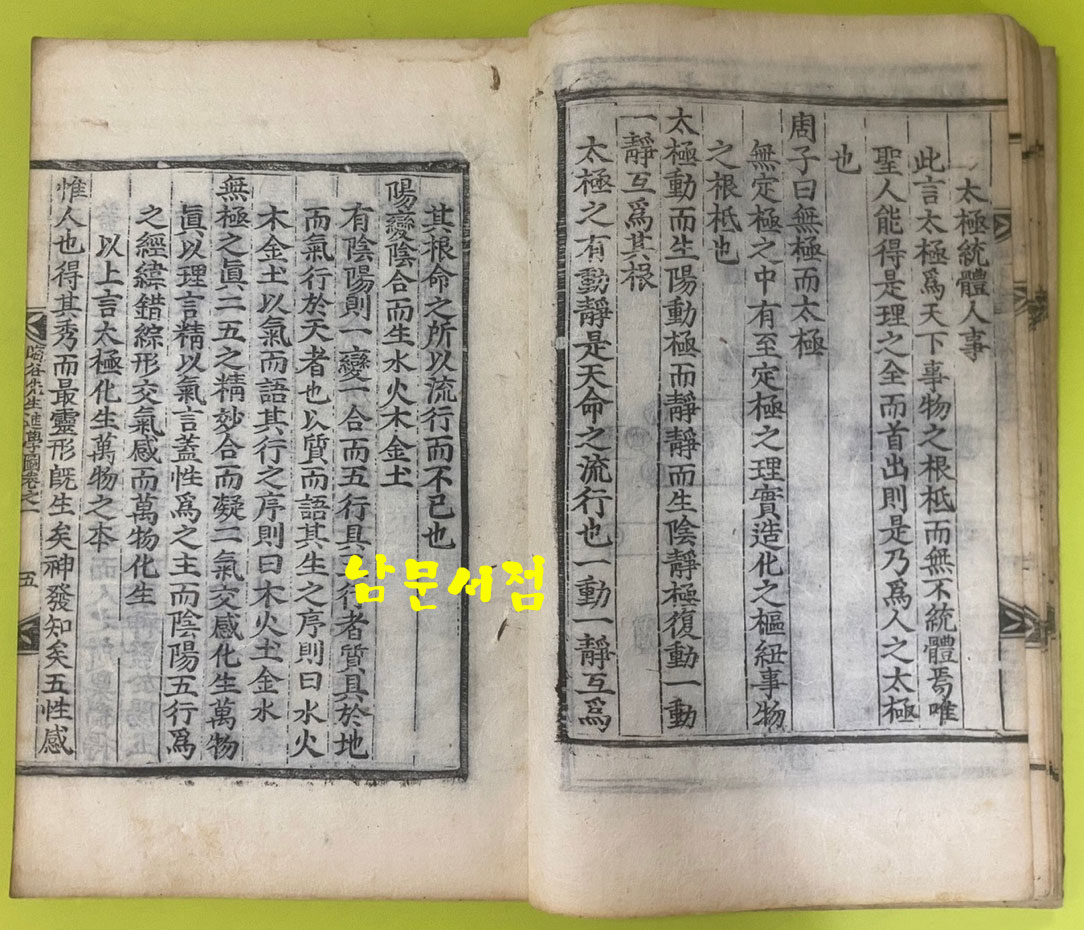 太極統體人事
此言太極爲天下事物之根柢而無不統體焉唯
聖人能得是理之全而首出則是乃爲人之太極
也
周子曰無極而太極
無定極之中有至定極之理實造化之樞紐事物
之根柢也
太極動而生陽動極而靜靜而生陰靜極復動一動
一靜互爲其根
太極之有動靜是天命之流行也一動一靜互爲
其根命之所以流行而不已也
陽變陰合而生水火木金土
有陰陽則一變一合而五行具五行者質具於地
而氣行於天者也以質而語其生之序則曰水火
木金土以氣而語其行之序則曰木火土金水
無極之眞二五之精妙合而凝二氣交感化生萬物
眞以理言精以氣言蓋性爲之主而陰陽五行爲
之經緯錯綜形交氣感而萬物化生
以上言太極化生萬物之本
惟人也得其秀而最靈形旣生矣神發知矣五性感
先生進學圖卷之一
五
남문서점